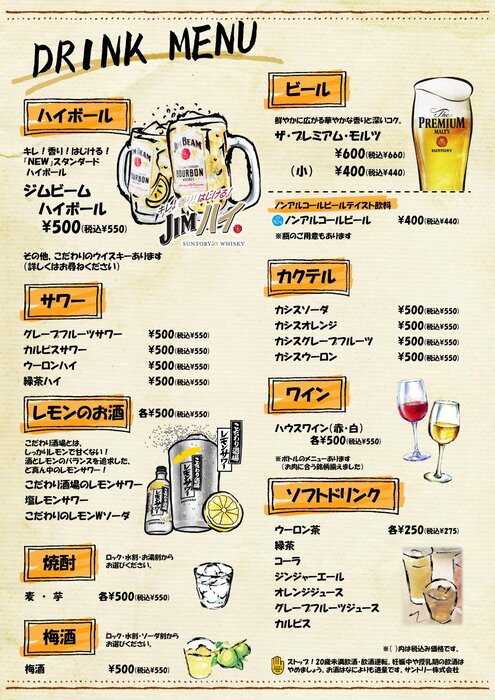 DRINK MENU
ハイボール
キレ！香り！はじける！
「NEW」スタンダード
ハイボール
ジムビーム
ハイボール
¥500(税込¥550)
JIM BEAM
BOURBON
キレ!香り!はじける!
JIMハイ。
SUNTORY WHISKY
その他、こだわりのウイスキーあります
(詳しくはお尋ねください)
サワー
グレープフルーツサワー ¥500(税込¥550)
カルピスサワー ¥500(税込¥550)
ウーロンハイ ¥500(税込¥550)
緑茶ハイ ¥500(税込¥550)
レモンのお酒 各¥500(税込¥550)
こだわり酒場とは、
しっかりレモンで甘くない！
酒とレモンのバランスを追求した、
ど真ん中のレモンサワー！
こだわり酒場のレモンサワー
塩レモンサワー
こだわりのレモンWソーダ
こだわり酒場の
レモンサワー
焼酎
ロック・水割・お湯割から
お選びください。
麦・芋 各¥500(税込¥550)
梅酒
ロック・水割・ソーダ割から
お選びください。
梅酒 ¥500(税込¥550)
ビール
鮮やかに広がる華やかな香りと深いコク。
ザ・プレミアム・モルツ
¥600(税込¥660)
（小） ¥400(税込¥440)
The
PREMIUM
MALT'S
SUNTORY
ノンアルコールビールテイスト飲料
ノンアルコールビール ¥400(税込¥440)
※瓶のご用意もあります
カクテル
カシスソーダ ¥500(税込¥550)
カシスオレンジ ¥500(税込¥550)
カシスグレープフルーツ ¥500(税込¥550)
カシスウーロン ¥500(税込¥550)
ワイン
ハウスワイン(赤・白)
各¥500(税込¥550)
※ボトルのメニューあります
(お肉に合う銘柄揃えました)
ソフトドリンク
ウーロン茶 各¥250(税込¥275)
緑茶
コーラ
ジンジャーエール
オレンジジュース
グレープフルーツジュース
カルピス
※( )内は税込み価格です。
ストップ！20歳未満飲酒・飲酒運転。妊娠中や授乳期の飲酒は
やめましょう。お酒はなによりも適量です。サントリー株式会社